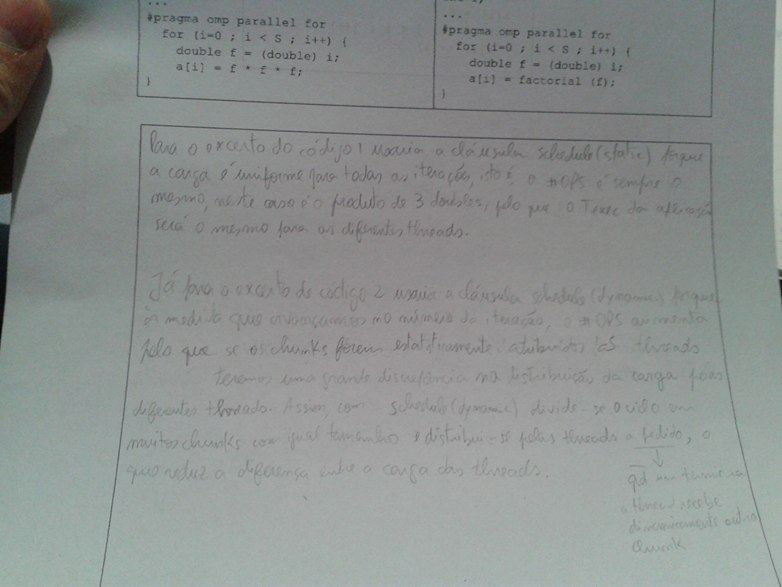 ...
#pragma omp parallel for
for (i=0 ; i < S ; i++) {
double f = (double) i;
a[i] = f * f * f;
}
...
#pragma omp parallel for
for (i=0 ; i < S ; i++) {
double f = (double) i;
a[i] = factorial (f);
}
Para o excerto do código 1 usaria a cláusula schedule(static) porque
a carga é uniforme para todas as iterações, isto é, o #OPS é sempre o
mesmo, neste caso é o produto de 3 doubles, pelo que o Texec da
será o mesmo para os diferentes threads.
Já para o excerto de código 2 usaria a cláusula schedule(dynamic) porque
à medida que avançamos no número da iteração, o #OPS aumenta
pelo que se os chunks forem estaticamente atribuídos às threads
teremos uma grande discrepância na distribuição da carga pelas
diferentes threads. Assim, com schedule(dynamic) divide-se o ciclo em
muitos chunks com igual tamanho e distribui-se pelas threads a pedido, o
que reduz a diferença entre a carga das threads.
qd um termina
a thread recebe
dinamicamente outro
chunk